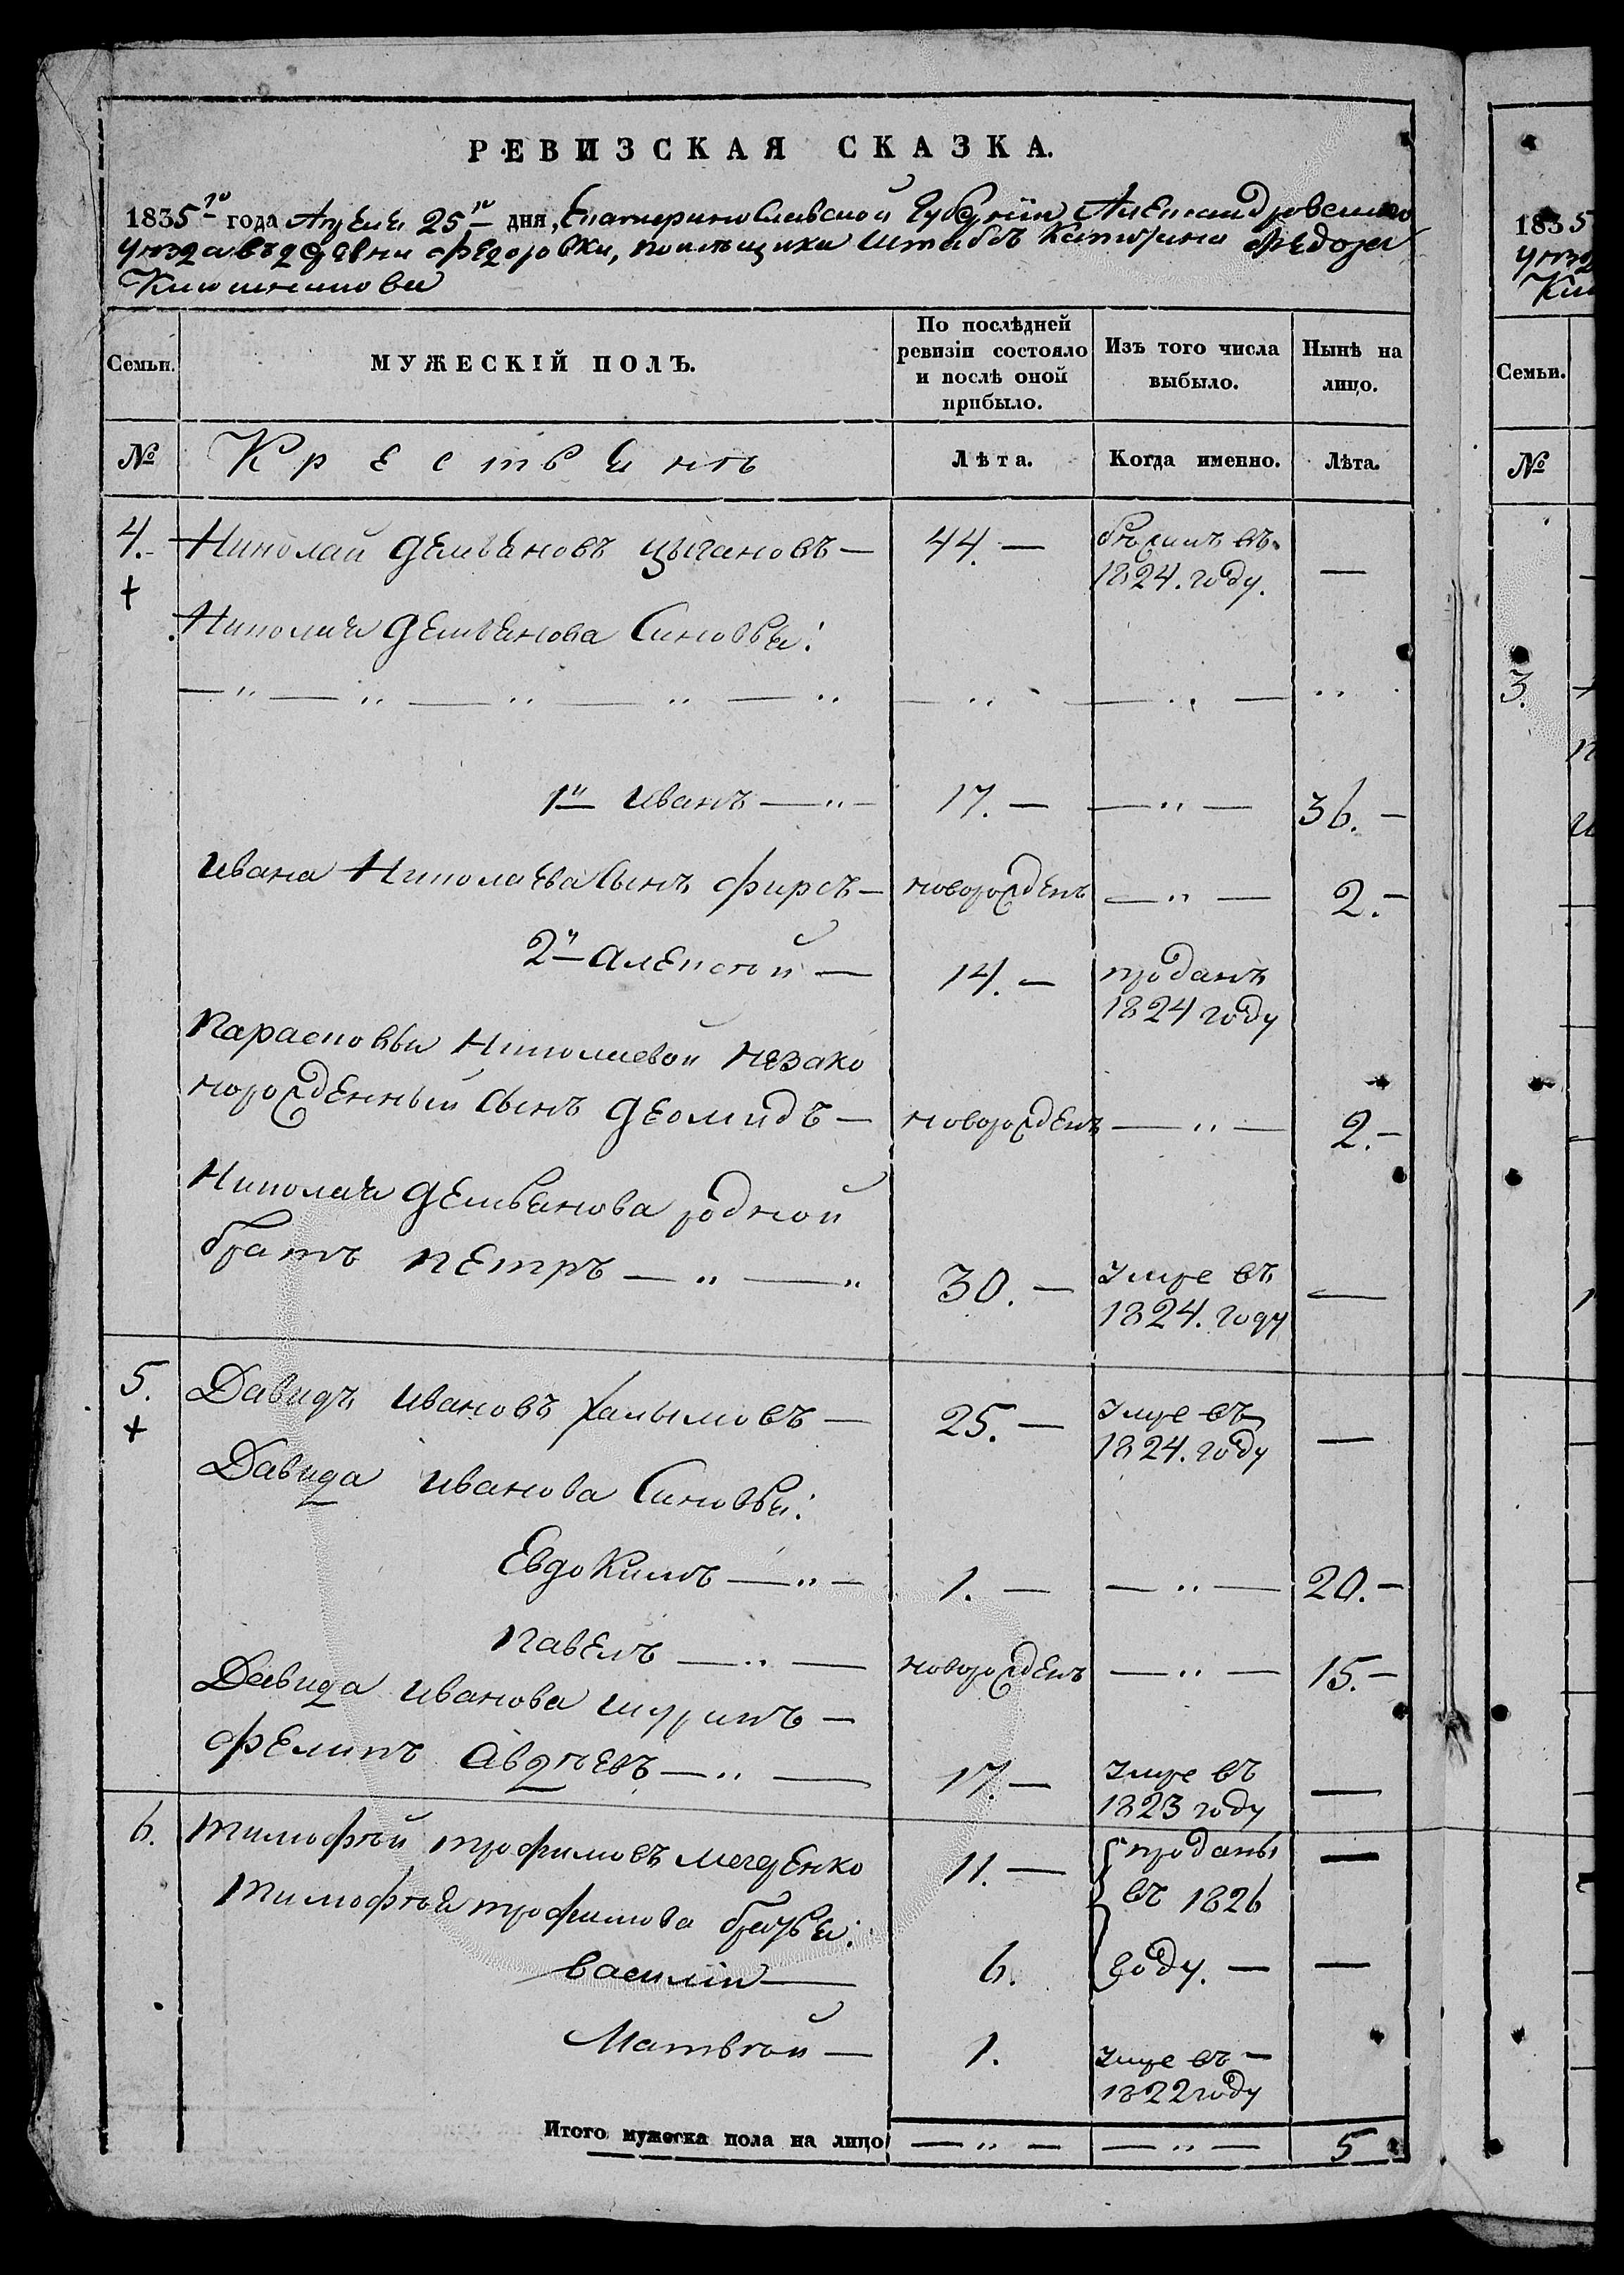 РЕВИЗСКАЯ СКАЗКА.
1835го года Апреля 25го дня, Екатеринославской Губернiи Александровскаго
уезда въ деревни Федоровки, помещика Штабсъ Капитана Федора
Семьи.
МУЖЕСКIЙ ПОЛЪ.
По послѣдней ревизiи состояло и послѣ оной прибыло.
Изъ того числа выбыло.
Нынѣ на лицо.
№ Крестьянъ Лѣта. Когда именно. Лѣта.
4. Николай Демьяновъ Цыгановъ — 44. — въ 1824. году. —
Николая Демьянова Синовья:
1й Иванъ — 17. — — 36. —
Ивана Николаева Сынъ Фирсъ — новорожденъ — 2. —
2й Алексей — 14. — проданъ 1824 году
Парасковьи Николаевой незако
норожденный Сынъ Деомидъ — новорожденъ — 2. —
Николая Демьянова родной
братъ Петръ — 30. — умре въ 1824. году —
5. Давидъ Ивановъ — 25. — умре въ 1824. году —
Давида Иванова Синовья:
Евдокимъ — 1. — — 20. —
Павелъ — новорожденъ — 15. —
Давида Иванова шуринъ —
Фелипъ Авдѣевъ — 17. — умре въ 1823 году —
6. Тимофѣй Трофимовъ 11. — проданы —
Тимофѣя Трофимова братья: въ 1826
Василiй — 6. году. — —
Матвѣй — 1. умре въ — 1822 году
Итого мужеска пола на лицо — — 5
1835
Семьи.
№
3.